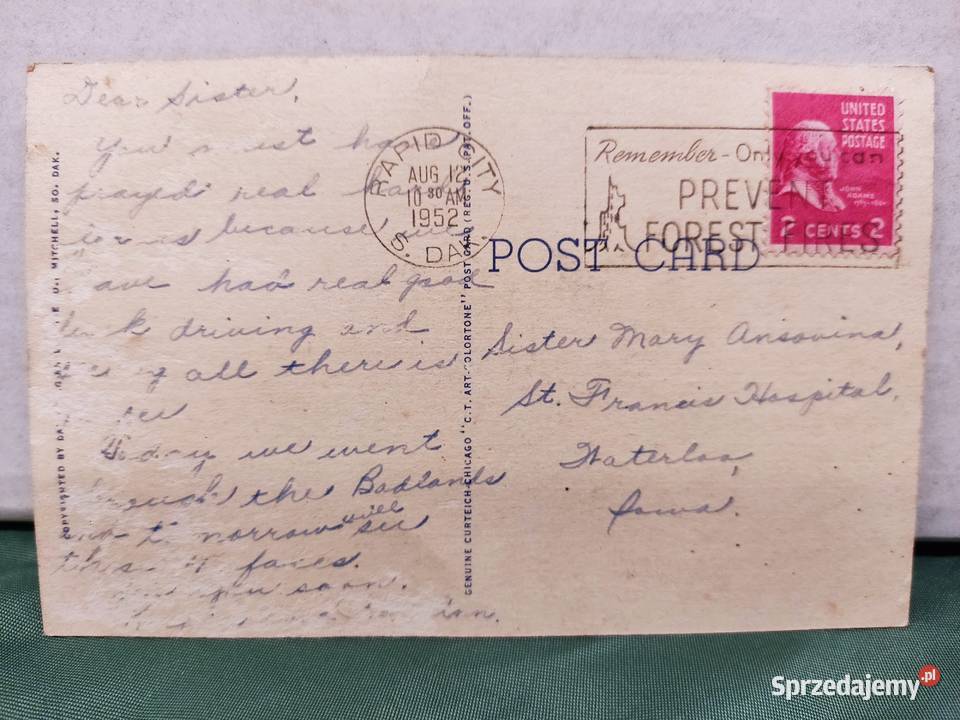 Dear Sister,
You must have
prayed real hard
for us because we
have had real good
luck driving and
all there is
to see
Today we went
through the Badlands
tomorrow will see
the faces.
you soon.
RAPID CITY
AUG 12
10 30 AM
1952
S. DAK.
Remember - Only you can
PREVENT
FOREST FIRES
UNITED
STATES
POSTAGE
JOHN
ADAMS
2 CENTS 2
POST CARD
Sister Mary Ansovina,
St. Francis Hospital,
Waterloo,
Iowa.
GENUINE CURTEICH-CHICAGO "C.T. ART-COLORTONE" POST CARD (REG. U.S. PAT. OFF.)
COPYRIGHTED BY MITCHELL, SO. DAK.
Sprzedajemy.pl